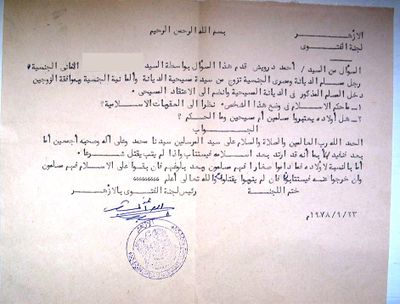 بسم الله الرحمن الرحيم
الأزهر
لجنة الفتوى
السؤال من السيد / أحمد درويش قدم هذا السؤال بواسطة السيد المانى الجنسية
رجل مسلم الديانة ومصرى الجنسية تزوج من سيدة مسيحية الديانة وألمانية الجنسية وبموافقة الزوجين
دخل المسلم المذكور فى الديانة المسيحية وانضم الى الاعتقاد المسيحى
١- ماحكم الاسلام فى وضع هذا الشخص نظرا الى العقوبات الاسلامية ؟
٢- هل أولاده يعتبروا مسلمون أم مسيحيين وما الحكم ؟
الجواب
الحمد لله رب العالمين والصلاة والسلام على سيد المرسلين سيدنا محمد وعلى آله وصحبه أجمعين أما
بعد فنفيد بأنه قد ارتد بعد اسلامه فيستتاب فاذا لم يتب يقتل شرعا
أما بالنسبة لأولاده فما داموا صغارا فهم مسلمون وبعد بلوغهم فان بقوا على الاسلام فهم مسلمون
وان خرجوا عنه فيستتابوا فان لم يتوبوا يقتلوا والله تعالى أعلم
ختم اللجنة رئيس لجنة الفتوى بالأزهر
١٩٧٨/٩/٢٣م